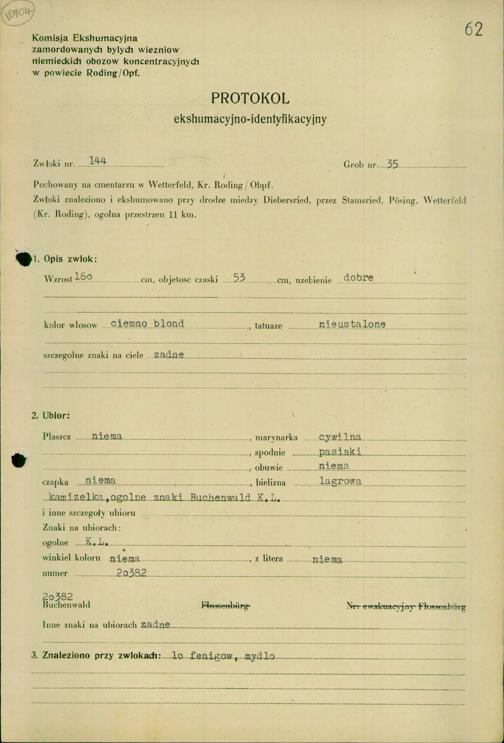 10904
62
Komisja Ekshumacyjna
zamordowanych bylych wiezniow
niemieckich obozow koncentracyjnych
w powiecie Roding/Opf.
PROTOKOL
ekshumacyjno-identyfikacyjny
Zwłoki nr. 144 Grob nr. 35
Pochowany na cmentarzu w Wetterfeld, Kr. Roding/Obpf.
Zwłoki znaleziono i ekshumowano przy drodze miedzy Diebersried, przez Stamsried, Pösing, Wetterfeld
(Kr. Roding), ogolna przestrzen 11 km.
1. Opis zwłok:
Wzrost 16o cm, objetosc czaski 53 cm, uzebienie dobre
kolor włosow ciemno blond , tatuaze nieustalone
szczegolne znaki na ciele zadne
2. Ubior:
Płaszcz niema , marynarka cywilna
, spodnie pasiaki
, obuwie niema
czapka niema , bielizna lagrowa
kamizelka,ogolne znaki Buchenwald K.L.
i inne szczegoły ubioru
Znaki na ubiorach:
ogolne K.L.
winkiel koloru niema , z litera niema
numer 2o382
2o382
Buchenwald Flossenbürg Nr. ewakuacyjny Flossenbürg
Inne znaki na ubiorach zadne
3. Znaleziono przy zwłokach: lo fenigow, mydlo